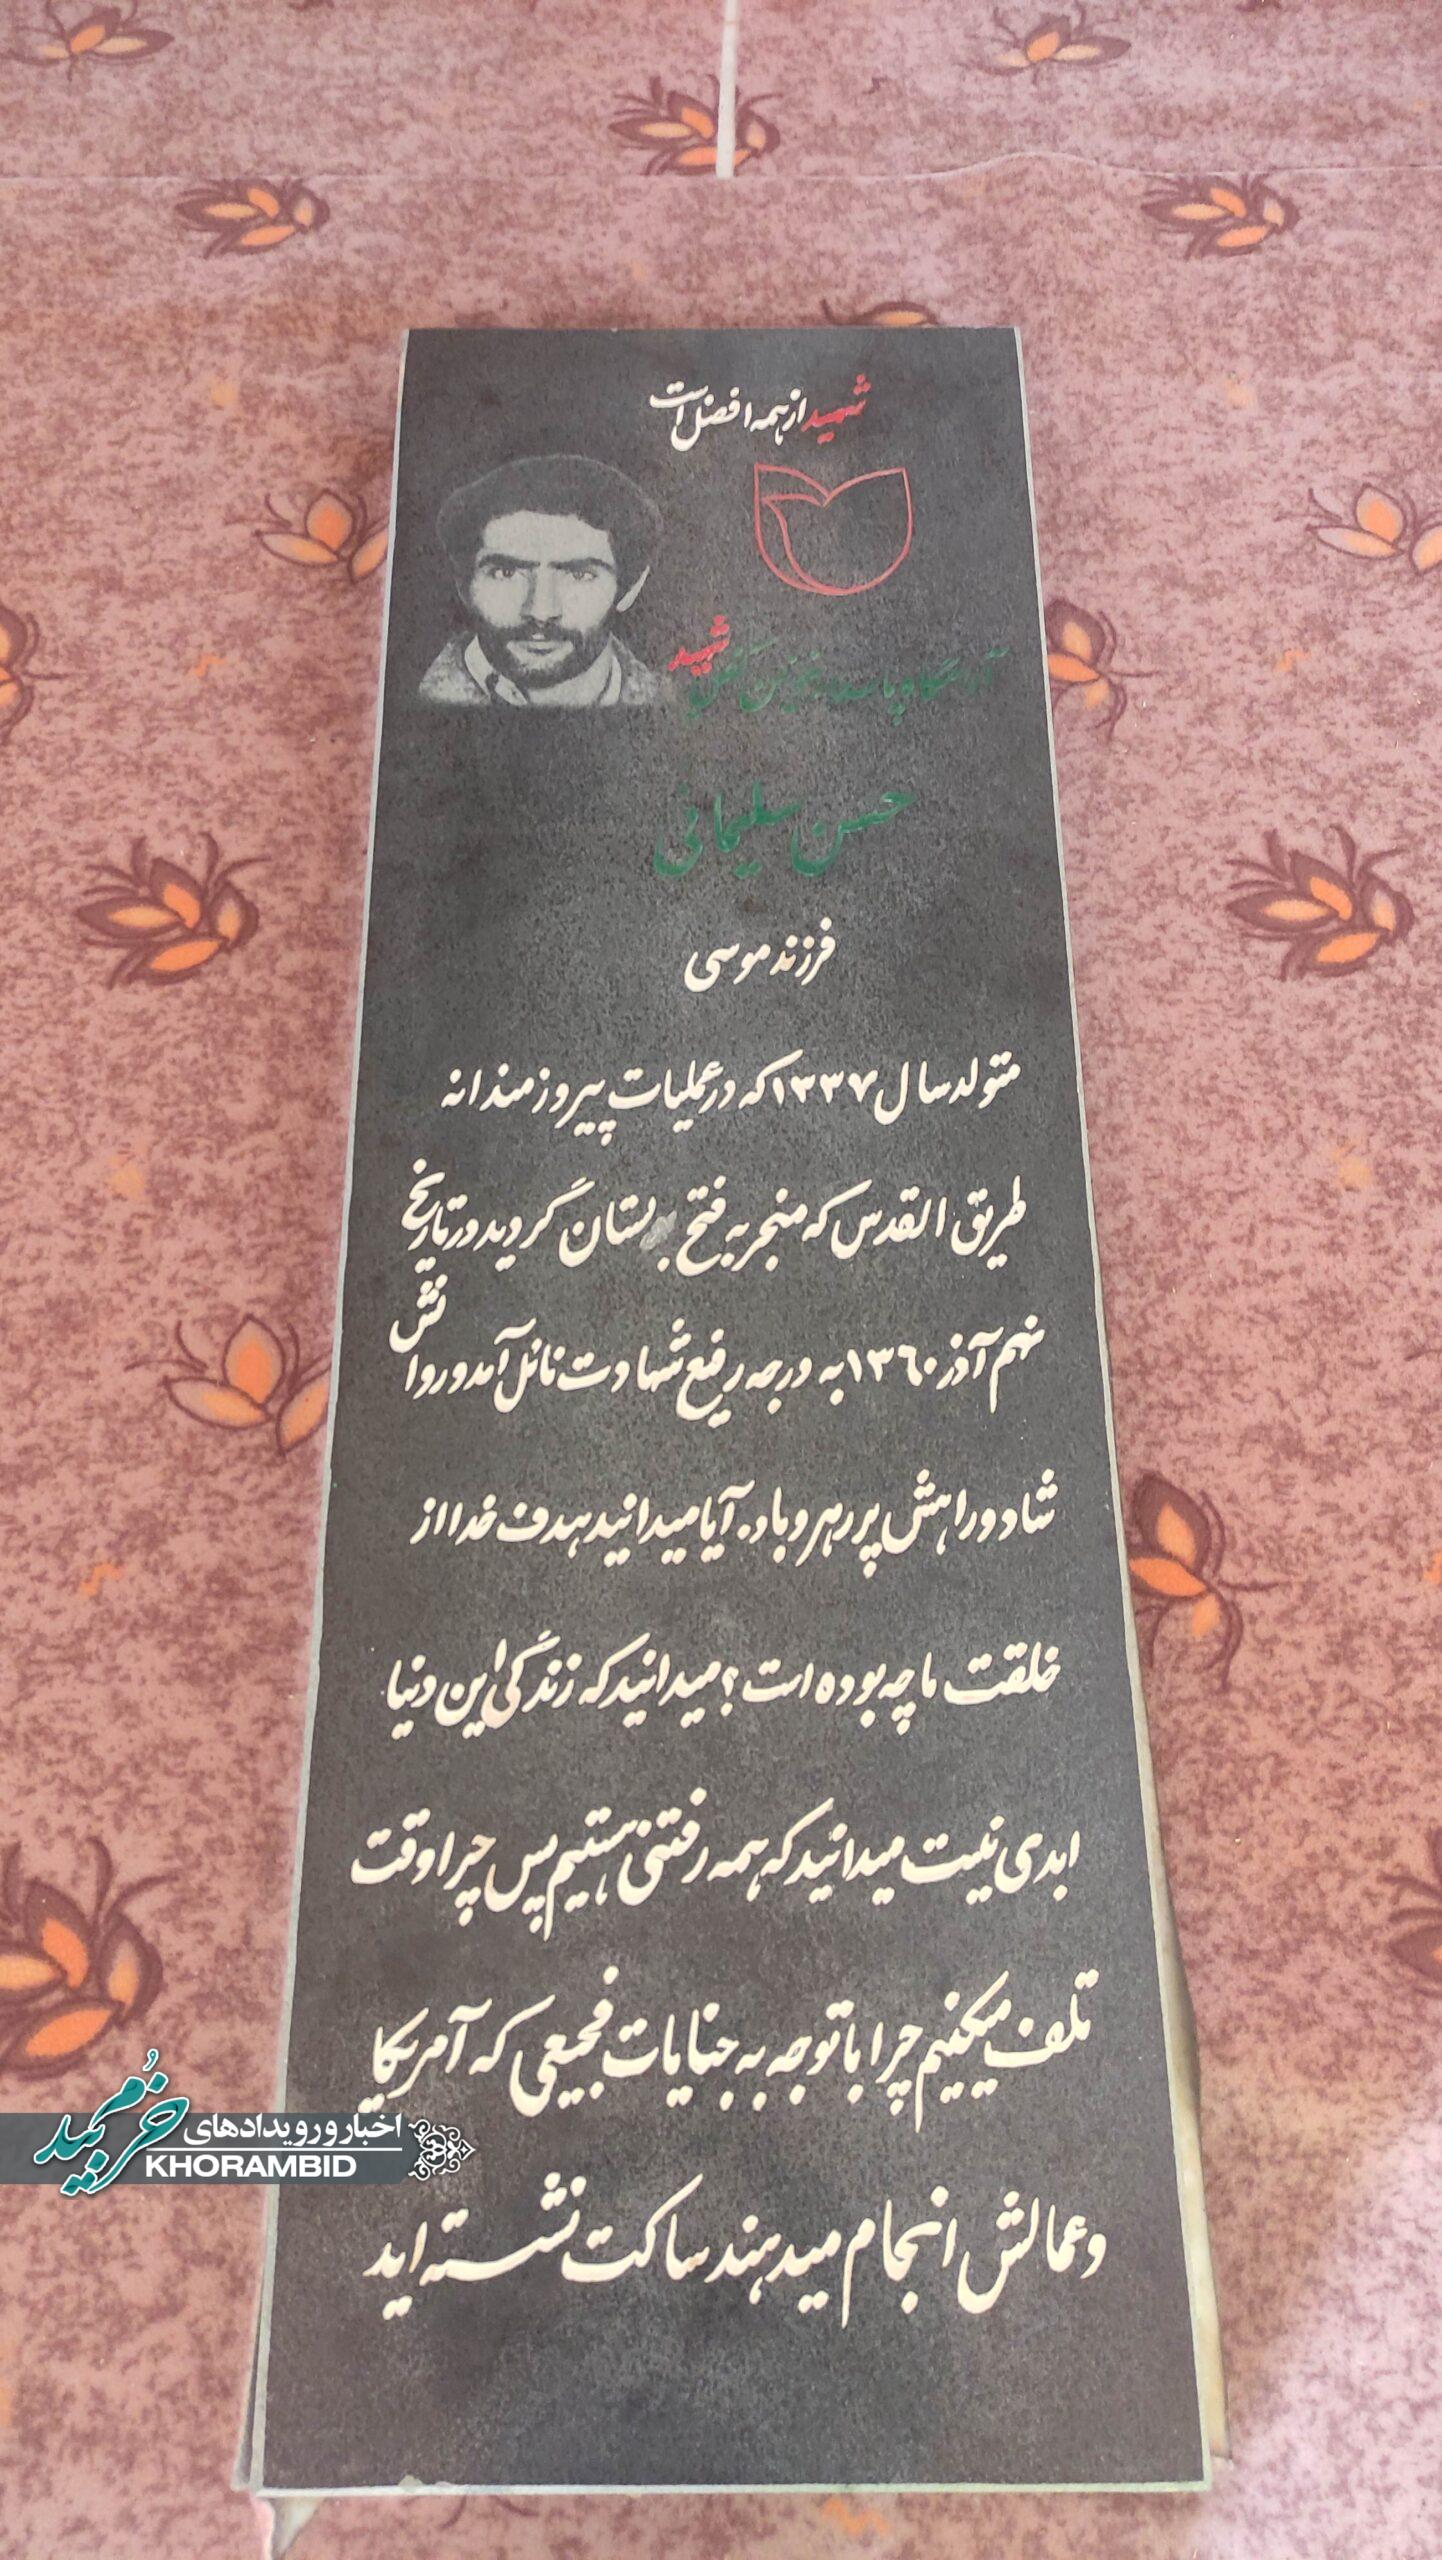 شهید از همه افضل است
آرامگاه پاسدار خونین کفن شهید
حسن سلیمانی
فرزند موسی
متولد سال ۱۳۳۷ که در عملیات پیروزمندانه
طریق القدس که منجر به فتح بستان گردید در تاریخ
نهم آذر ۱۳۶۰ به درجه رفیع شهادت نائل آمد و روانش
شاد و راهش پر رهرو باد. آیا میدانید هدف خدا از
خلقت ما چه بوده است؟ میدانید که زندگی این دنیا
ابدی نیست میدانید که همه رفتنی هستیم پس چرا وقت
تلف میکنیم چرا با توجه به جنایات فجیعی که آمریکا
و عمالش انجام میدهند ساکت نشسته اید
اخبار و رویدادهای
خرمبید
KHORAMBID